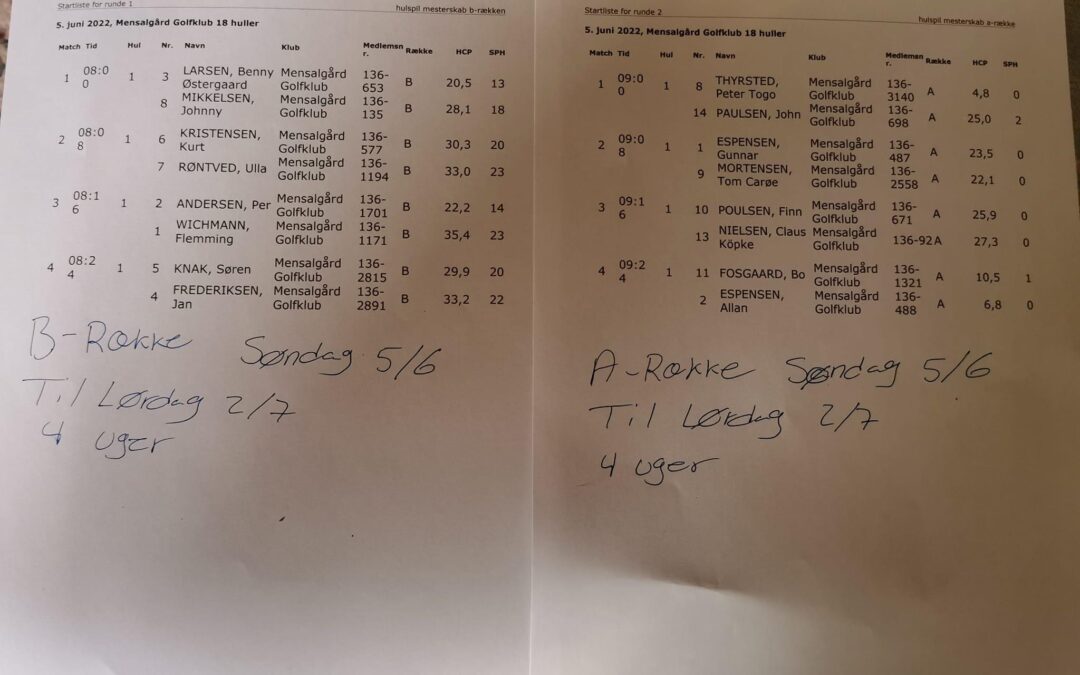 Startliste for runde 1 hulspil mesterskab b-rækken
5. juni 2022, Mensalgård Golfklub 18 huller
Match Tid Hul Nr. Navn Klub Medlemsnr. Række HCP SPH
1 08:00 1 3 LARSEN, Benny Østergaard Mensalgård Golfklub 136-653 B 20,5 13
8 MIKKELSEN, Johnny Mensalgård Golfklub 136-135 B 28,1 18
2 08:08 1 6 KRISTENSEN, Kurt Mensalgård Golfklub 136-577 B 30,3 20
7 RØNTVED, Ulla Mensalgård Golfklub 136-1194 B 33,0 23
3 08:16 1 2 ANDERSEN, Per Mensalgård Golfklub 136-1701 B 22,2 14
1 WICHMANN, Flemming Mensalgård Golfklub 136-1171 B 35,4 23
4 08:24 1 5 KNAK, Søren Mensalgård Golfklub 136-2815 B 29,9 20
4 FREDERIKSEN, Jan Mensalgård Golfklub 136-2891 B 33,2 22
B-Række Søndag 5/6
Til Lørdag 2/7
4 uger
Startliste for runde 2 hulspil mesterskab a-række
5. juni 2022, Mensalgård Golfklub 18 huller
Match Tid Hul Nr. Navn Klub Medlemsnr. Række HCP SPH
1 09:00 1 8 THYRSTED, Peter Togo Mensalgård Golfklub 136-3140 A 4,8 0
14 PAULSEN, John Mensalgård Golfklub 136-698 A 25,0 2
2 09:08 1 1 ESPENSEN, Gunnar Mensalgård Golfklub 136-487 A 23,5 0
9 MORTENSEN, Tom Carøe Mensalgård Golfklub 136-2558 A 22,1 0
3 09:16 1 10 POULSEN, Finn Mensalgård Golfklub 136-671 A 25,9 0
13 NIELSEN, Claus Köpke Mensalgård Golfklub 136-92 A 27,3 0
4 09:24 1 11 FOSGAARD, Bo Mensalgård Golfklub 136-1321 A 10,5 1
2 ESPENSEN, Allan Mensalgård Golfklub 136-488 A 6,8 0
A-Række Søndag 5/6
Til Lørdag 2/7
4 uger